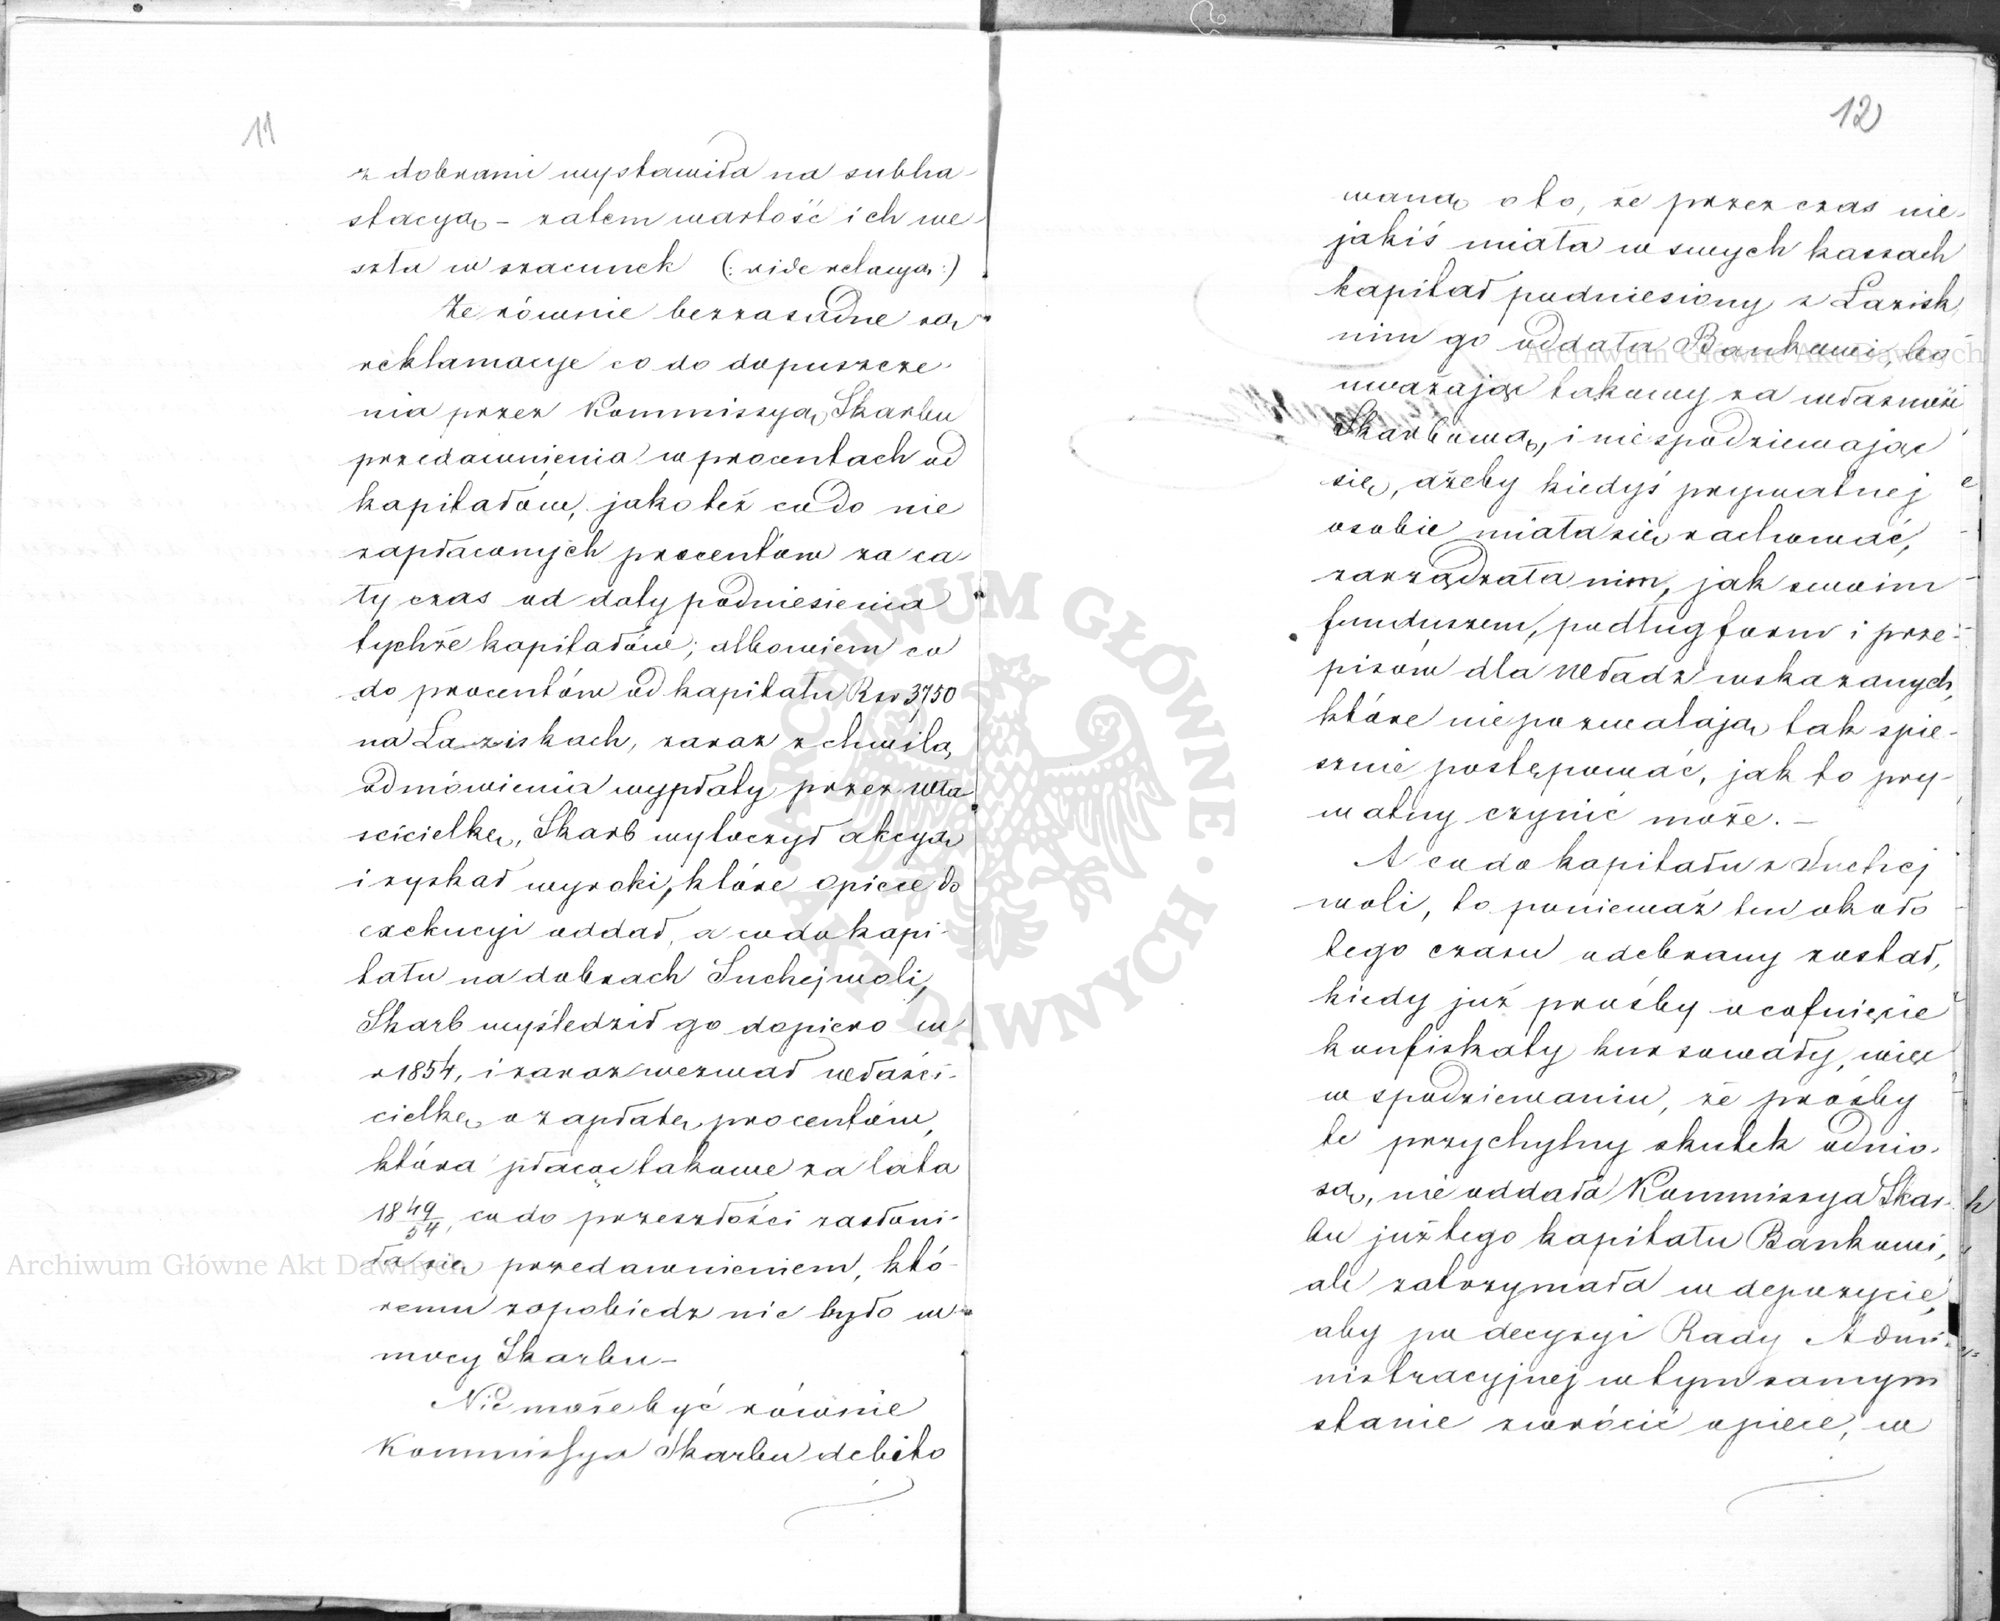 11
z dobrami wystawiła na subha-
stacyą – zatem wartość ich we-
szła w szacunek (: vide relacya :)
Że równie bezzasadne są
reklamacyje co do dopuszcze-
nia przez Kommissyą Skarbu
przedawnienia w procentach od
kapitałów, jako też co do nie
zapłaconych procentów za ca-
ły czas od daty podniesienia
tychże kapitałów; albowiem co
do procentów od kapitału Rsr 3750
na Łaziskach, zaraz z chwilą
odmówienia wypłaty przez wła
scicielkę, Skarb wytoczył akcyą
i zyskał wyroki, które opiece do
exekucyi oddał, a co do kapi-
tału na dobrach Suchejwoli,
Skarb wyśledził go dopiero w
r 1854, i zaraz wezwał właści-
cielkę o zapłatę procentów,
która płacąc takowe za lata
1849/54, co do przeszłości zasłoni-
ła się przedawnieniem, któ-
remu zapobiedz nie było w
mocy Skarbu –
Nie może być równie
Kommissya Skarbu debito
12
waną o to, że przez czas nie-
jakiś miała w swych kassach
kapitał podniesiony z Łazisk
nim go oddała Bankowi, bo
uważając takowy za własność
Skarbową, i nie spodziewając
się, ażeby kiedyś prywatnej
osobie miała się zachować,
zarządzała nim, jak swoim
funduszem, podług form i prze-
pisów dla Władz wskazanych,
które nie pozwalają tak spie-
sznie postępować, jak to pry-
watny czynić może. –
A co do kapitału z Suchej
woli, to ponieważ ten około
tego czasu odebrany został,
kiedy już prośby o cofnięcie
konfiskaty kursowały, więc
w spodziewaniu, że prośby
te przychylny skutek odnio-
są, nie oddała Kommissya Skar-
bu już tego kapitału Bankowi,
ale zatrzymała w depozycie,
aby po decyzyi Rady Admi-
nistracyjnej w tym samym
stanie zwrócić opiece, w
Archiwum Główne Akt Dawnych
Archiwum Główne Akt Dawnych
ARCHIWUM GŁÓWNE · AKT DAWNYCH ·